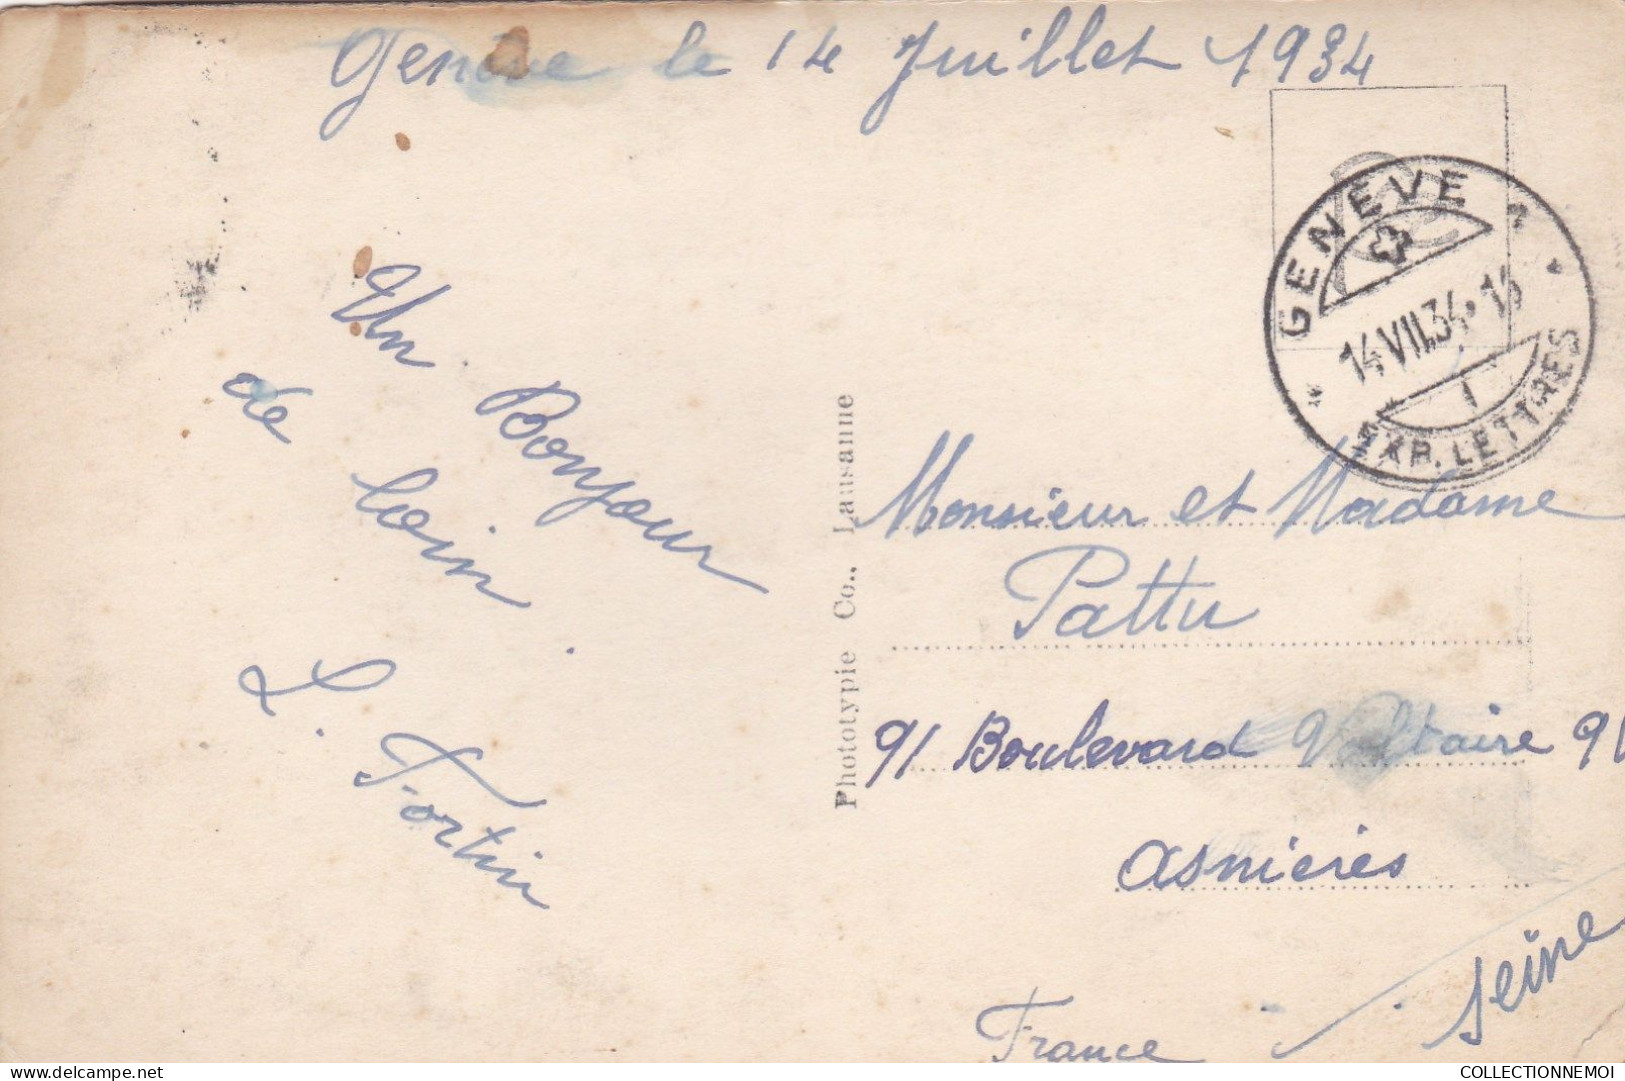 Genève le 14 Juillet 1934
GENÈVE 1
14.VII.34.
EXP. LETTRES
Un Bonjour
de loin.
L. Fortin
Phototypie Co., Lausanne
Monsieur et Madame
Pattu
91 Boulevard Voltaire 91
Asnières
Seine
France
COLLECTIONNEMOI